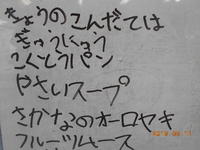 きょうのこんだては
ぎゅうにゅう
こくとうパン
やさいスープ
さかなのオーロヤキ
フルーツムース